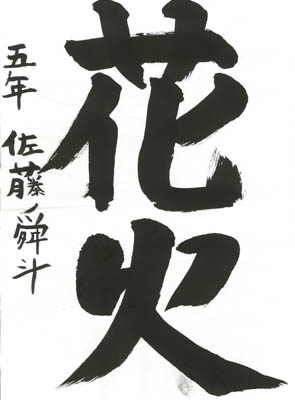 花火
五年 佐藤舜斗